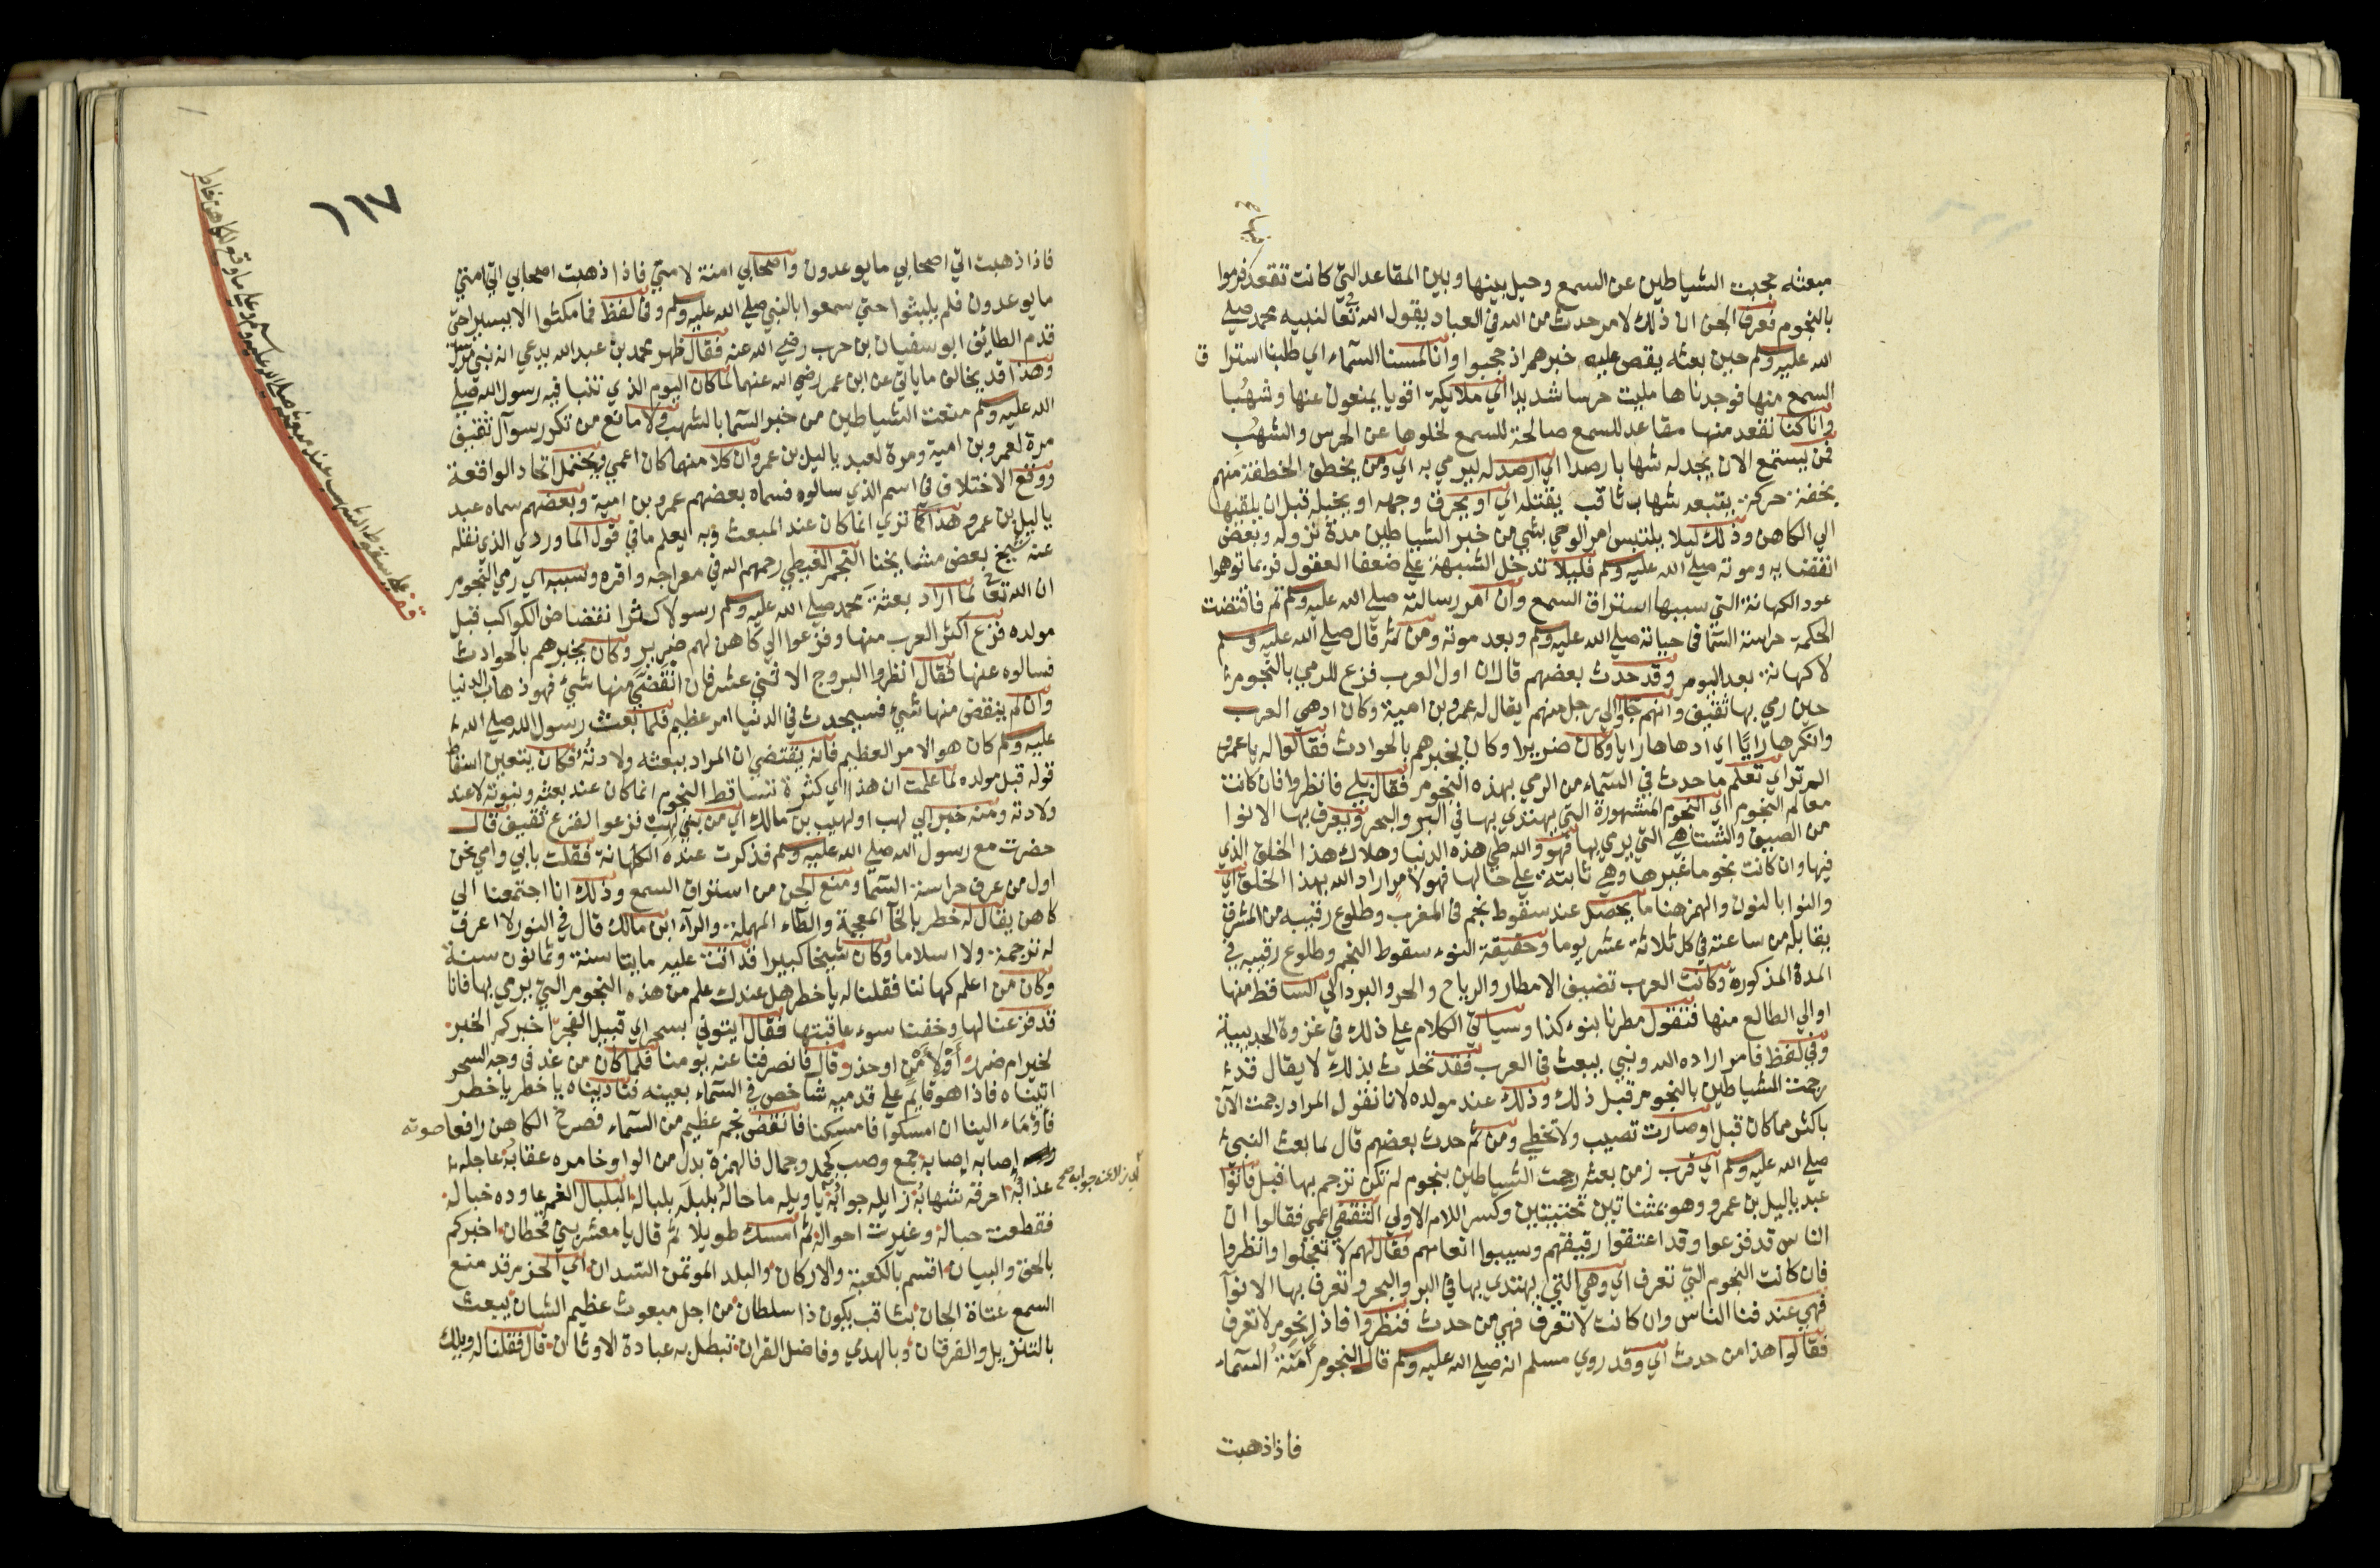 مبعثه حجبت الشياطين عن السمع وحيل بينها وبين المقاعد التي كانت تقعد فرموا
بالنجوم فعرف الجن ان ذلك لامر حدث من الله في العباد يقول الله تعالى لنبيه محمد صلى
الله عليه وسلم حين بعثه يقص عليه خبرهم اذ حجبوا وانا لمسنا السماء اي طلبنا استرا ق
السمع منها فوجدناها مليت حرسا شديدا اي ملايكة اقويا يمنعون عنها وشهبا
وانا كنا نقعد منها مقاعد للسمع صالحة للسمع لخلوها عن الحرس والشهب
فمن يستمع الان يجد له شهابا رصدا اي ارصد له ليرمي به اي ومن يخطف الخطفة منهم
بخفة حركة يتبعه شهاب ثاقب يقتله اي او يحرق وجهه او يخبله قبل ان يلقيها
الي الكاهن وذلك ليلا يلتبس امر الوحي بشي من خبر الشياطين مدة نزوله وبعض
انقضايه وموته صلى الله عليه وسلم فليلا تدخل الشبهة علي ضعفا العقول فربما توهموا
عود الكهانة التي سببها استراق السمع وان امر رسالته صلى الله عليه وسلم تم فاقتضت
الحكمة حراسة السما في حياته صلى الله عليه وسلم وبعد موته ومن ثم قال صلى الله عليه وسلم
لا كهانة بعد اليوم وقد حدث بعضهم قال ان اول العرب فزع للرمي بالنجوم
حين رمي بها ثقيف وانهم جاوا الي رجل منهم يقال له عمرو بن امية وكان ادهي العرب
وانكرها رايا اي ادهاها رايا وكان ضريرا وكان يخبرهم بالحوادث فقالوا له يا عمرو
الم تر اي تعلم ما حدث في السماء من الرمي بهذه النجوم فقال بلي فانظروا فان كانت
معالم النجوم اي النجوم المشهورة التي يهتدي بها في البر والبحر ويعرف بها الانوا
من الصيف والشتا هي التي يرمي بها فهو والله طي هذه الدنيا وهلاك هذا الخلق الذي
فيها وان كانت نجوما غيرها وهي ثابتة علي حالها فهو لامر اراد الله بهذا الخلق اي
والنوا بالنون والهمز هنا ما يحصل عند سقوط نجم في المغرب وطلوع رقيبه من المشرق
يقابله من ساعته في كل ثلاثة عشر يوما وحقيقة النوء سقوط النجم وطلوع رقيبه في
المدة المذكورة وكانت العرب تضيف الامطار والرياح والحر والبرد الي الساقط منها
او الي الطالع منها فتقول مطرنا بنوء كذا وسياتي الكلام علي ذلك في غزوة الحديبية
وفي لفظ فامر اراده الله ونبي يبعث في العرب فقد تحدث بذلك لا يقال قد
رجمت الشياطين بالنجوم قبل ذلك وذلك عند مولده لانا نقول المراد رجمت الآن
باكثر مما كان قبل او صارت تصيب ولا تخطي ومن ثم حدث بعضهم قال لما بعث النبي
صلى الله عليه وسلم اي قرب زمن بعثه رجمت الشياطين بنجوم لم تكن ترجم بها قبل فاتوا
عبد ياليل بن عمرو وهو بمثناتين تحتيتين وكسر اللام الاولي الثقفي اعمي فقالوا ان
الناس قد فزعوا وقد اعتقوا رقيقهم وسيبوا انعامهم فقال لهم لا تعجلوا وانظروا
فان كانت النجوم التي تعرف اي وهي التي يهتدي بها في البر والبحر وتعرف بها الانوآ
فهي عند فنا الناس وان كانت لا تعرف فهي من حدث فنظروا فاذا نجوم لا تعرف
فقالوا هذا من حدث اي وقد روي مسلم انه صلى الله عليه وسلم قال النجوم امنة السماء
فاذا ذهبت
١١٧
فاذا ذهبت اتي اصحابي ما يوعدون واصحابي امنة لامتي فاذا ذهبت اصحابي اتي امتي
ما يوعدون فلم يلبثوا حتي سمعوا بالنبي صلى الله عليه وسلم وفي لفظ فما مكثوا الا يسيرا حتي
قدم الطائف ابو سفيان بن حرب رضي الله عنه فقال ظهر محمد بن عبد الله يدعي انه نبي مرسل
وهذا قد يخالف ما ياتي عن ابن عمر رضي الله عنهما لما كان اليوم الذي تنبا فيه رسول الله صلى
الله عليه وسلم منعت الشياطين من خبر السما بالشهب ولا مانع من تكرر سوآل ثقيف
مرة لعمرو بن امية ومرة لعبد ياليل بن عمرو وان كلا منهما كان اعمي ويحتمل اتحاد الواقعة
ووقع الاختلاف في اسم الذي سالوه فسماه بعضهم عمرو بن امية وبعضهم سماه عبد
ياليل بن عمرو هذا كما تري انما كان عند المبعث وبه يعلم ما في قول الماوردي الذي نقله
عنه شيخ بعض مشايخنا النجم الغيطي رحمهم الله في معراجه واقره وسببه اي رمي النجوم
ان الله تعالى لما اراد بعثة محمد صلى الله عليه وسلم رسولا كثر انقضاض الكواكب قبل
مولده فزع اكثر العرب منها وفزعوا الي كاهن لهم ضرير وكان يخبرهم بالحوادث
فسالوه عنها فقال انظروا البروج الاثني عشر فان انقضي منها شي فهو ذهاب الدنيا
وان لم ينقض منها شي فسيحدث في الدنيا امر عظيم فلما بعث رسول الله صلى الله
عليه وسلم كان هو الامر العظيم فانه يقتضي ان المراد ببعثه ولادته فكان يتعين اسقاط
قوله قبل مولده لما علمت ان هذا اي كثرة تساقط النجوم انما كان عند بعثه ونبوته لا عند
ولادته ومنه خبر ابي لهب او لهيب بن مالك اي من بني لهب فزعوا لفزع ثقيف قال
حضرت مع رسول الله صلى الله عليه وسلم فذكرت عنده الكهانة فقلت بابي وامي نحن
اول من عرف حراسة السما ومنع الجن من استراق السمع وذلك انا اجتمعنا الي
كاهن يقال له خطر بالخآ المعجمة والطاء المهملة والرآء ابن مالك قال في النور لا اعرف
له ترجمة ولا اسلاما وكان شيخا كبيرا قد اتت عليه مايتا سنة وثمانون سنة
وكان من اعلم كهاننا فقلنا له يا خطر هل عندك علم من هذه النجوم التي يرمي بها فانا
قد فزعنا لها وخفنا سوء عاقبتها فقال ايتوني بسحر اي قبيل الفجر اخبركم الخبر
لخير ام ضرر أو لأمن او حذر وقال فانصرفنا عنه يومنا فلما كان من غد في وجه السحر
اتيناه فاذا هو قايم علي قدميه شاخص في السماء بعينه فناديناه يا خطر يا خطر
فأومأء الينا ان امسكوا فامسكنا فانقض نجم عظيم من السماء فصرخ الكاهن رافعا صوته
إصابه إصابه جمع وصب كجمل وجمال فالهمزة بدل من الواو خامره عقابه عاجله
عذابه احرقه شهابه زايله جوابه يا ويله ما حاله بلبله بلباله البلبال الغم عاوده خباله
فقطعت حباله وغيرت احواله ثم امسك طويلا ثم قال يا معشر بني قحطان اخبركم
بالحق والبيان اقسم بالكعبة والاركان والبلد الموتمن السدان اي الحزم قد منع
السمع عتاة الجان بثاقب يكون ذا سلطان من اجل مبعوث عظيم الشان يبعث
بالتنزيل والفرقان وبالهدي وفاضل القران تبطل به عبادة الاوثان قال فقلنا له ويلك
اي زال عنه جوابه صح
قف علي سقوط الشهب عند مبعثه صلى الله عليه وسلم وعلي ما وقع للكاهن خطر